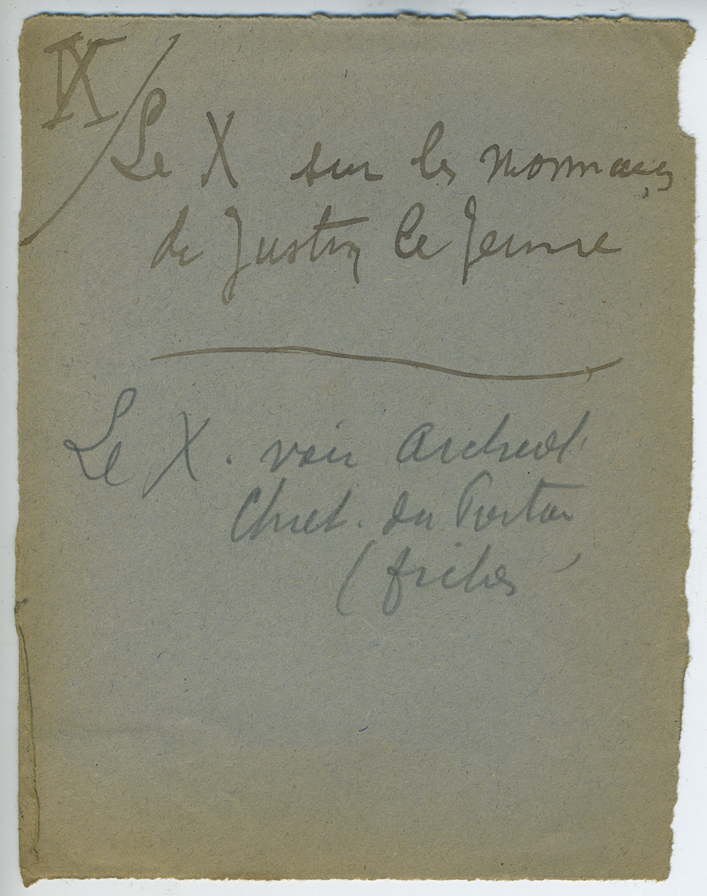 IX
Le X sur les monnaies
de Justin le Jeune
Le X. voir Archeol.
Chret. du Poitou
(fiches)